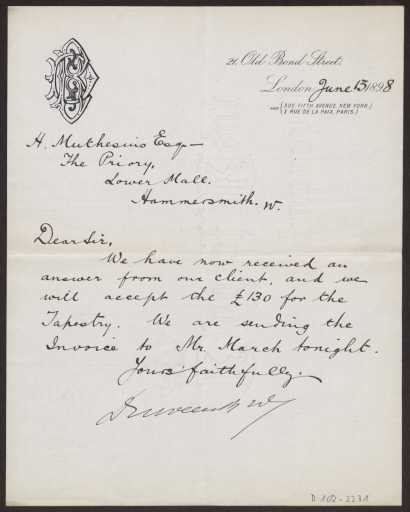 21, Old Bond Street.
London June 13 1898
AND 302, FIFTH AVENUE, NEW YORK.
2 RUE DE LA PAIX, PARIS.
H. Muthesius Esq—
The Priory,
Lower Mall.
Hammersmith. W.
Dear Sir,
We have now received an
answer from our client, and we
will accept the £130 for the
Tapestry. We are sending the
Invoice to Mr. March tonight.
Yours faithfully.
D-102-2231